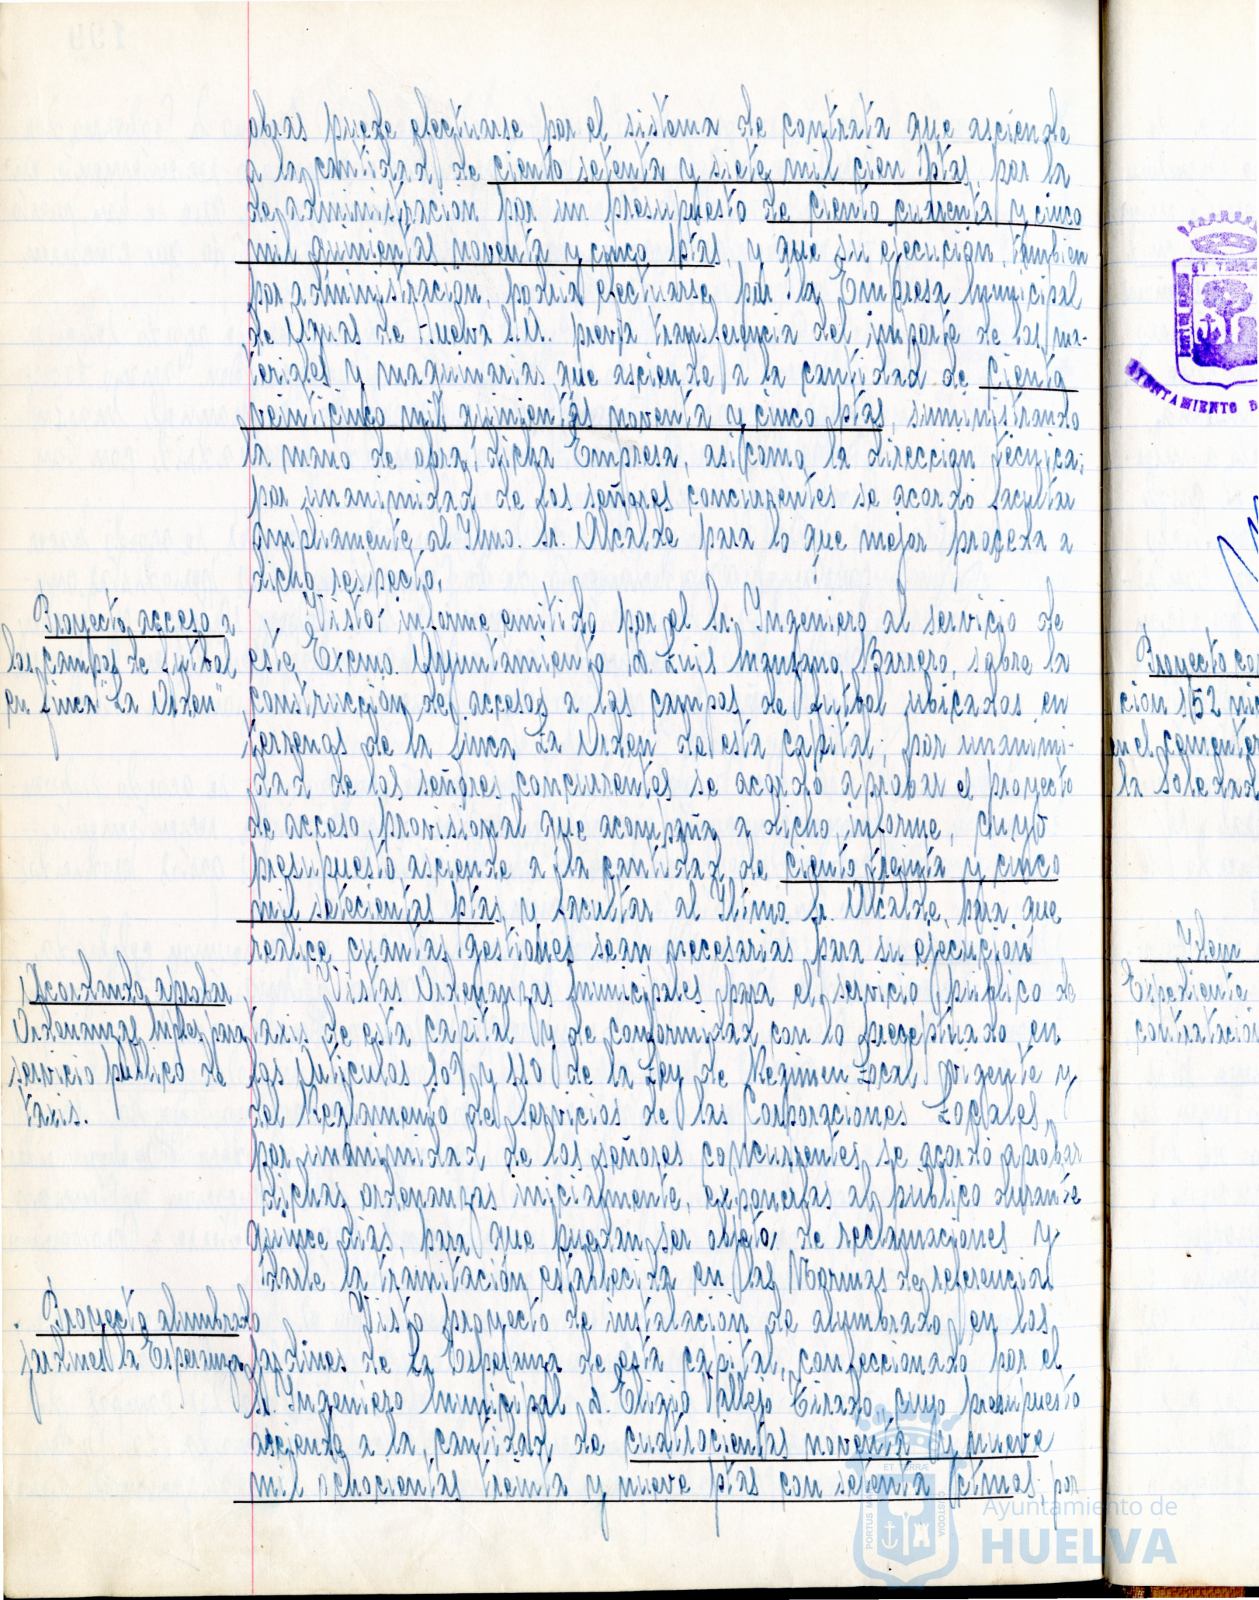 obras puede efectuarse por el sistema de contrata que asciende
a la cantidad de ciento setenta y siete mil cien ptas, por la
de administracion por un presupuesto de ciento cuarenta y cinco
mil quinientas noventa y cinco ptas, y que su ejecución, tambien
por administracion, podria efectuarse por la Empresa Municipal
de Aguas de Huelva S.A. previa transferencia del importe de los ma-
teriales y maquinarias que asciende a la cantidad de ciento
veinticinco mil quinientas noventa y cinco ptas, suministrando
la mano de obra, dicha Empresa, asi como la direccion técnica;
por unanimidad de los señores concurrentes se acordó facultar
ampliamente al Iltmo. Sr. Alcalde para lo que mejor proceda a
dicho respecto.
Proyecto acceso a
los campos de futbol
en finca "La Orden"
Visto informe emitido por el Sr. Ingeniero al servicio de
este Excmo. Ayuntamiento D. Luis Manzano Barrero, sobre la
construccion de accesos a los campos de futbol ubicados en
terrenos de la finca La Orden de esta capital; por unanimi-
dad de los señores concurrentes se acordó aprobar el proyecto
de acceso provisional que acompaña a dicho informe, cuyo
presupuesto asciende a la cantidad de ciento treinta y cinco
mil setecientas ptas y facultar al Iltmo. Sr. Alcalde, para que
realice cuantas gestiones sean necesarias para su ejecución
Acordando aprobar
Ordenanzas Mples para
servicio publico de
taxis.
Vistas Ordenanzas Municipales para el servicio publico de
taxis de esta capital y de conformidad con lo preceptuado en
los Articulos 109 y 110 de la Ley de Regimen Local vigente y
del Reglamento de Servicios de las Corporaciones Locales,
por unanimidad de los señores concurrentes, se acordó aprobar
dichas ordenanzas inicialmente, exponerlas al publico durante
quince dias, para que puedan ser objeto de reclamaciones y
darle la tramitación establecida en las Normas de referencia
Proyecto alumbrado
jardines la Esperanza
Visto proyecto de instalacion de alumbrado en los
jardines de La Esperanza de esta capital, confeccionado por el
Sr. Ingeniero Municipal D. Eligio Vallejo Tirado, cuyo presupuesto
asciende a la cantidad de cuatrocientas noventa y nueve
mil ochocientas treinta y nueve ptas con setenta ctmos, por
Proyecto
cion 152
en el
la Soledad
Idem
Expediente
contratación
AYUNTAMIENTO
Ayuntamiento de
HUELVA